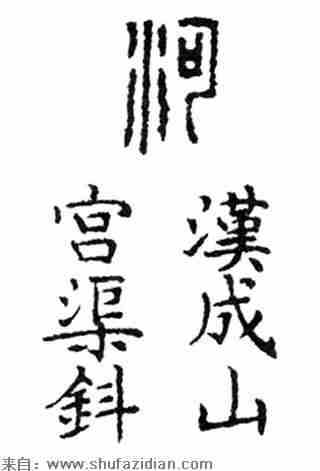 河
漢成山
宫渠鈄
来自：www.shufazidian.com